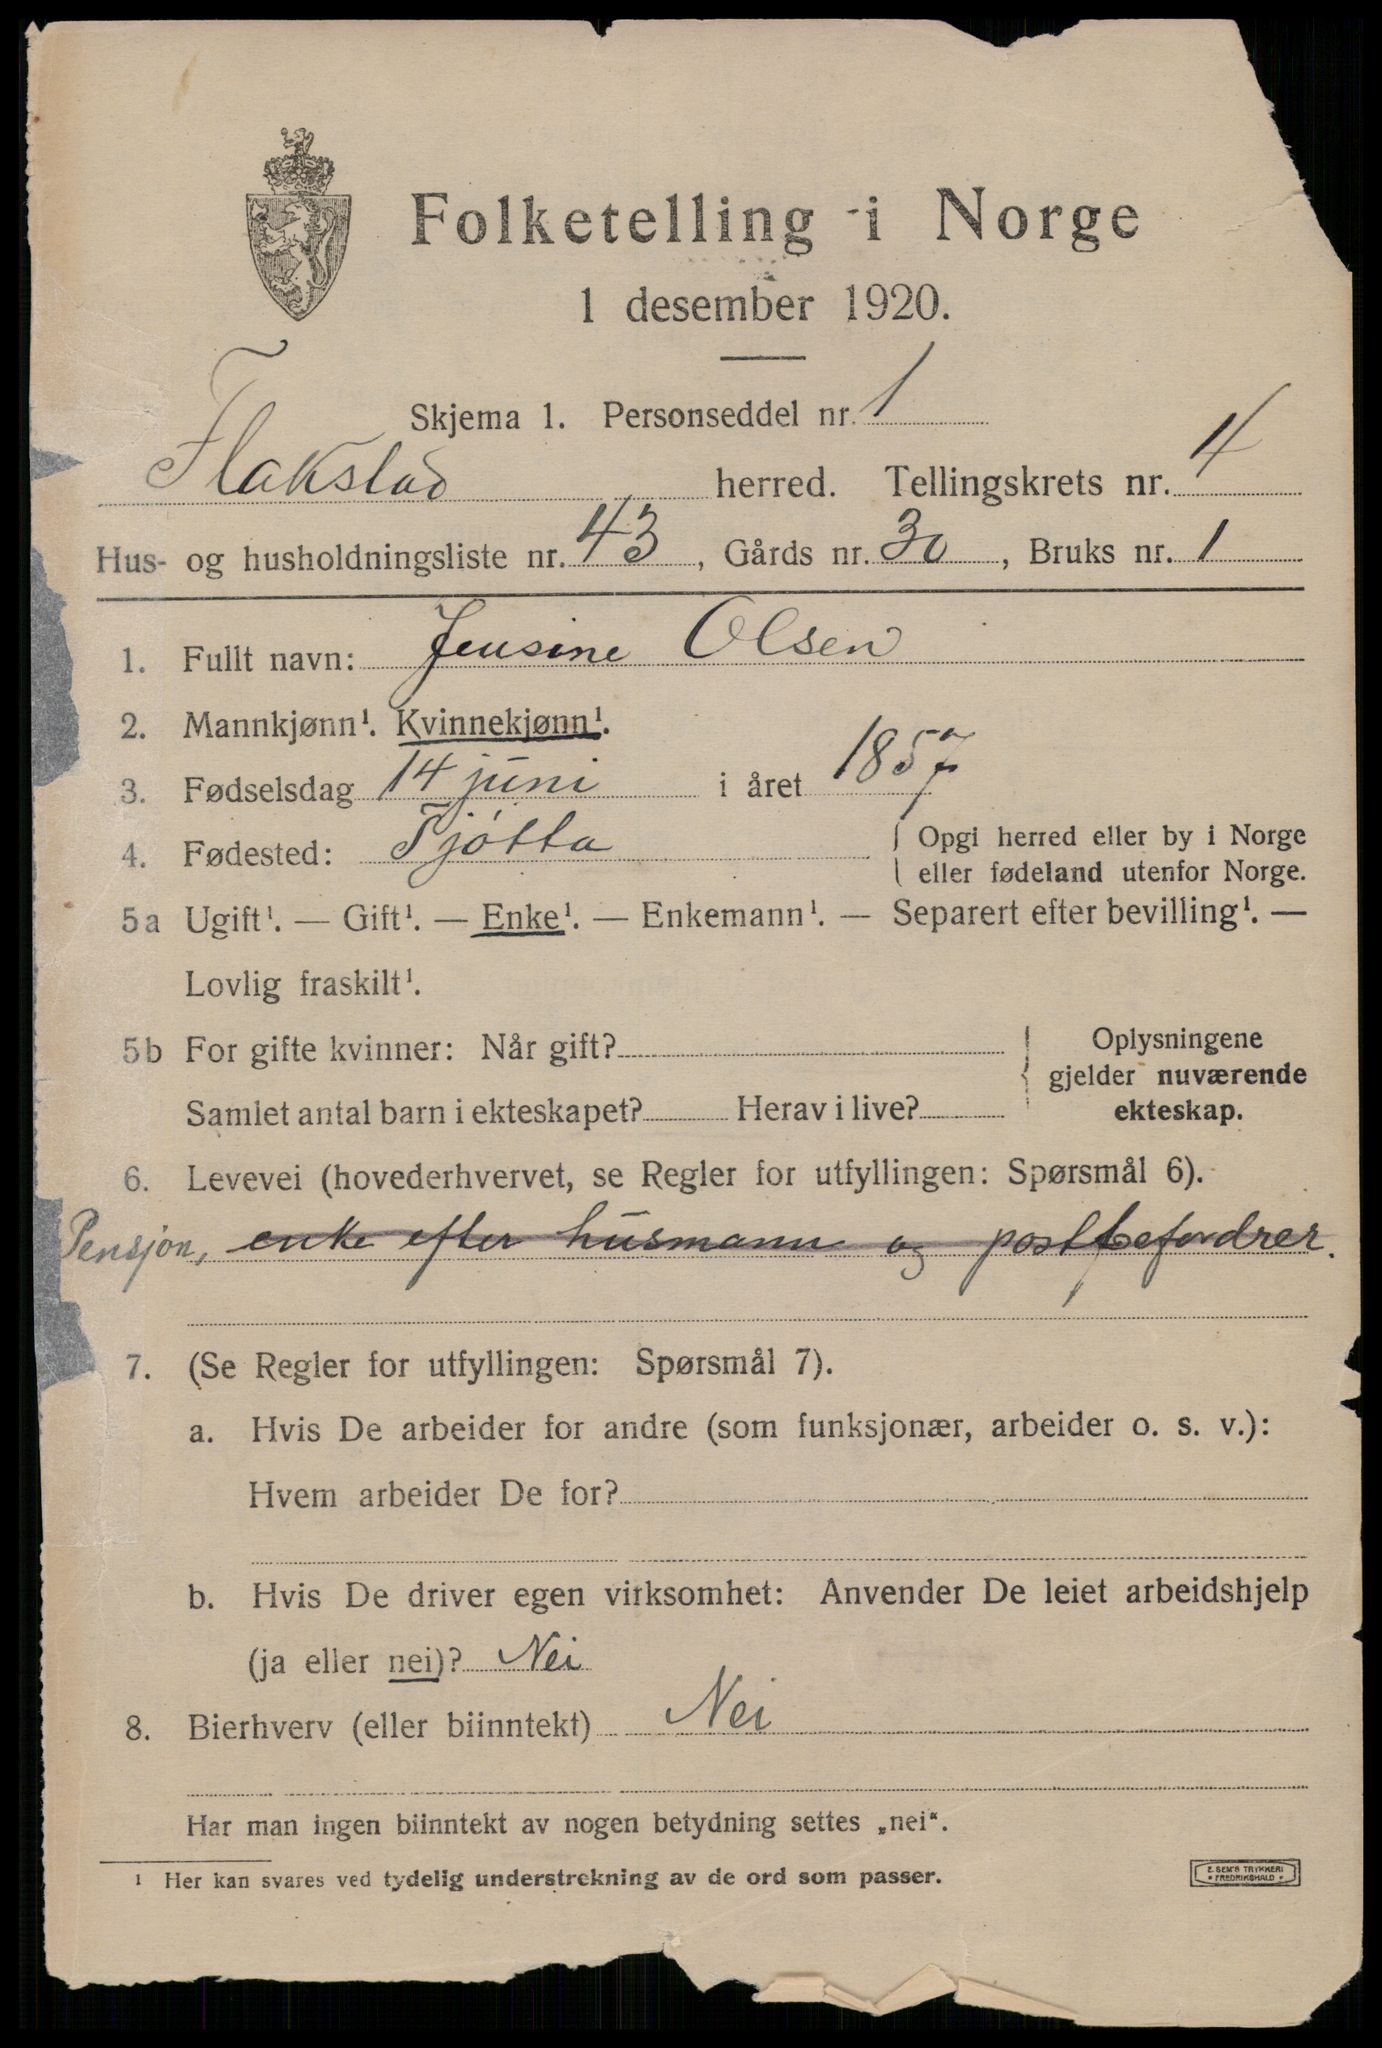 Folketelling i Norge
1 desember 1920.
Skjema 1. Personseddel nr. 1
Flakstad herred. Tellingskrets nr. 4
Hus- og husholdningsliste nr. 43, Gårds nr. 30, Bruks nr. 1
1. Fullt navn: Jensine Olsen
2. Mannkjønn¹. Kvinnekjønn¹.
3. Fødselsdag 14 juni i året 1857
4. Fødested: Tjótta { Opgi herred eller by i Norge
eller fødeland utenfor Norge.
5a Ugift¹. — Gift¹. — Enke¹. — Enkemann¹. — Separert efter bevilling¹. —
Lovlig fraskilt¹.
5b For gifte kvinner: Når gift? { Oplysningene
gjelder nuværende
Samlet antal barn i ekteskapet? Herav i live? ekteskap.
6. Levevei (hovederhvervet, se Regler for utfyllingen: Spørsmål 6).
Pensjon, enke efter husmann og postbefordrer.
7. (Se Regler for utfyllingen: Spørsmål 7).
a. Hvis De arbeider for andre (som funksjonær, arbeider o. s. v.):
Hvem arbeider De for?
b. Hvis De driver egen virksomhet: Anvender De leiet arbeidshjelp
(ja eller nei)? Nei
8. Bierhverv (eller biinntekt) Nei
Har man ingen biinntekt av nogen betydning settes „nei“.
¹ Her kan svares ved tydelig understrekning av de ord som passer.
E. SEM'S TRYKKERI
• FREDRIKSHALD •